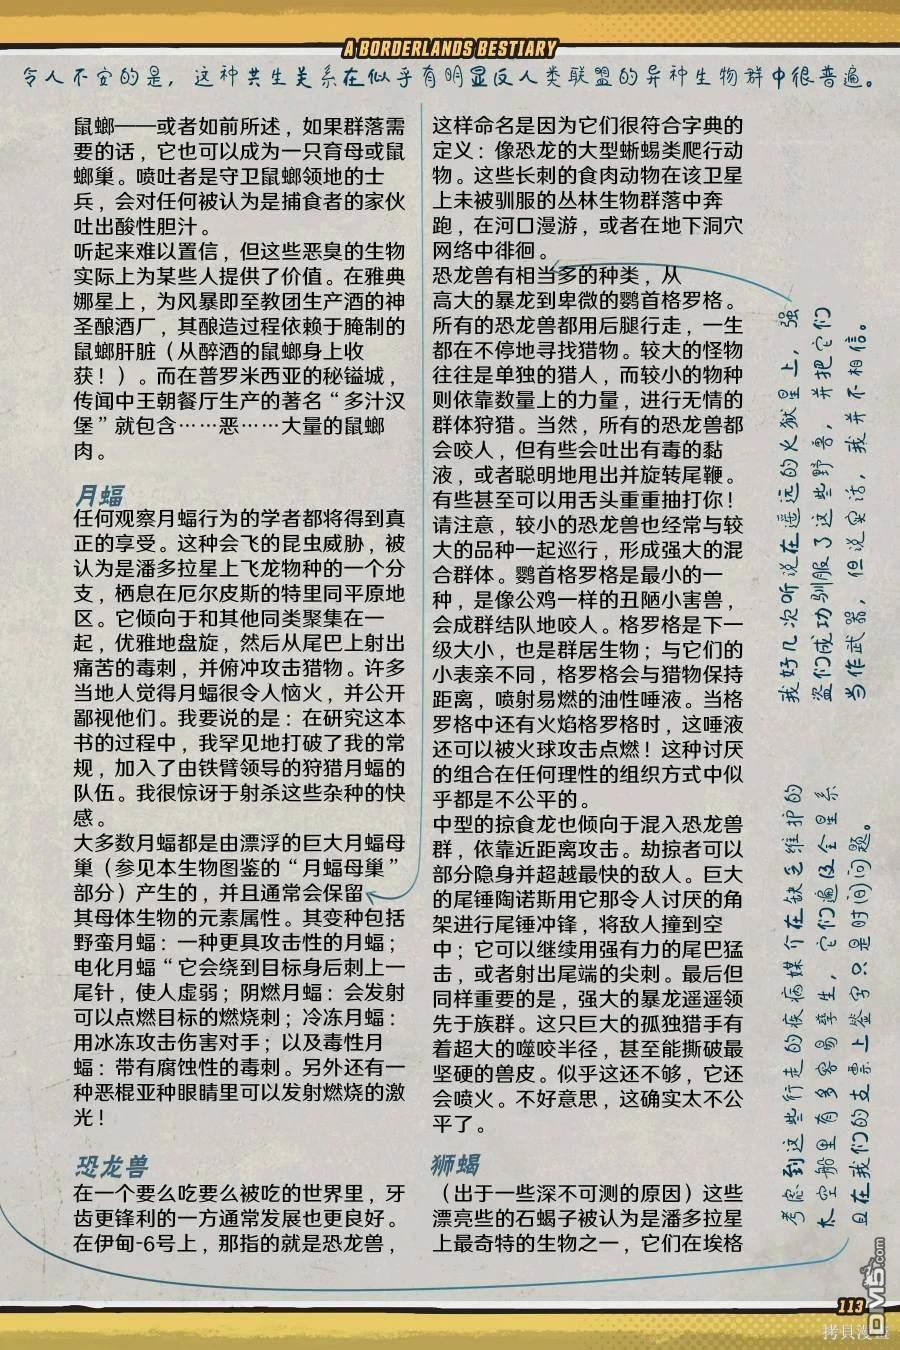 A BORDERLANDS BESTIARY
令人不安的是，这种共生关系在似乎有明显反人类联盟的异种生物群中很普遍。
鼠螂——或者如前所述，如果群落需
要的话，它也可以成为一只育母或鼠
螂巢。喷吐者是守卫鼠螂领地的士
兵，会对任何被认为是捕食者的家伙
吐出酸性胆汁。
听起来难以置信，但这些恶臭的生物
实际上为某些人提供了价值。在雅典
娜星上，为风暴即至教团生产酒的神
圣酿酒厂，其酿造过程依赖于腌制的
鼠螂肝脏（从醉酒的鼠螂身上收
获！）。而在普罗米西亚的秘镒城，
传闻中王朝餐厅生产的著名“多汁汉
堡”就包含……恶……大量的鼠螂
肉。
月蝠
任何观察月蝠行为的学者都将得到真
正的享受。这种会飞的昆虫威胁，被
认为是潘多拉星上飞龙物种的一个分
支，栖息在厄尔皮斯的特里同平原地
区。它倾向于和其他同类聚集在一
起，优雅地盘旋，然后从尾巴上射出
痛苦的毒刺，并俯冲攻击猎物。许多
当地人觉得月蝠很令人恼火，并公开
鄙视他们。我要说的是：在研究这本
书的过程中，我罕见地打破了我的常
规，加入了由铁臂领导的狩猎月蝠的
队伍。我很惊讶于射杀这些杂种的快
感。
大多数月蝠都是由漂浮的巨大月蝠母
巢（参见本生物图鉴的“月蝠母巢”
部分）产生的，并且通常会保留
其母体生物的元素属性。其变种包括
野蛮月蝠：一种更具攻击性的月蝠；
电化月蝠“它会绕到目标身后刺上一
尾针，使人虚弱；阴燃月蝠：会发射
可以点燃目标的燃烧刺；冷冻月蝠：
用冰冻攻击伤害对手；以及毒性月
蝠：带有腐蚀性的毒刺。另外还有一
种恶棍亚种眼睛里可以发射燃烧的激
光！
恐龙兽
在一个要么吃要么被吃的世界里，牙
齿更锋利的一方通常发展也更良好。
在伊甸-6号上，那指的就是恐龙兽，
这样命名是因为它们很符合字典的
定义：像恐龙的大型蜥蜴类爬行动
物。这些长刺的食肉动物在该卫星
上未被驯服的丛林生物群落中奔
跑，在河口漫游，或者在地下洞穴
网络中徘徊。
恐龙兽有相当多的种类，从
高大的暴龙到卑微的鹦首格罗格。
所有的恐龙兽都用后腿行走，一生
都在不停地寻找猎物。较大的怪物
往往是单独的猎人，而较小的物种
则依靠数量上的力量，进行无情的
群体狩猎。当然，所有的恐龙兽都
会咬人，但有些会吐出有毒的黏
液，或者聪明地甩出并旋转尾鞭。
有些甚至可以用舌头重重抽打你！
请注意，较小的恐龙兽也经常与较
大的品种一起巡行，形成强大的混
合群体。鹦首格罗格是最小的一
种，是像公鸡一样的丑陋小害兽，
会成群结队地咬人。格罗格是下一
级大小，也是群居生物；与它们的
小表亲不同，格罗格会与猎物保持
距离，喷射易燃的油性唾液。当格
罗格中还有火焰格罗格时，这唾液
还可以被火球攻击点燃！这种讨厌
的组合在任何理性的组织方式中似
乎都是不公平的。
中型的掠食龙也倾向于混入恐龙兽
群，依靠近距离攻击。劫掠者可以
部分隐身并超越最快的敌人。巨大
的尾锤陶诺斯用它那令人讨厌的角
架进行尾锤冲锋，将敌人撞到空
中；它可以继续用强有力的尾巴猛
击，或者射出尾端的尖刺。最后但
同样重要的是，强大的暴龙遥遥领
先于族群。这只巨大的孤独猎手有
着超大的噬咬半径，甚至能撕破最
坚硬的兽皮。似乎这还不够，它还
会喷火。不好意思，这确实太不公
平了。
狮蝎
（出于一些深不可测的原因）这些
漂亮些的石蝎子被认为是潘多拉星
上最奇特的生物之一，它们在埃格
我好几次听说在遥远的火狱星上，强
盗们成功驯服了这些野兽，并把它们
当作武器，但说实话，我并不相信。
考虑到这些行走的疾病媒介在缺乏维护的
太空船里有多容易孳生，它们遍及全星系
且在我们的支票上签字只是时间问题。
113
DM5.com
拷貝漫畫